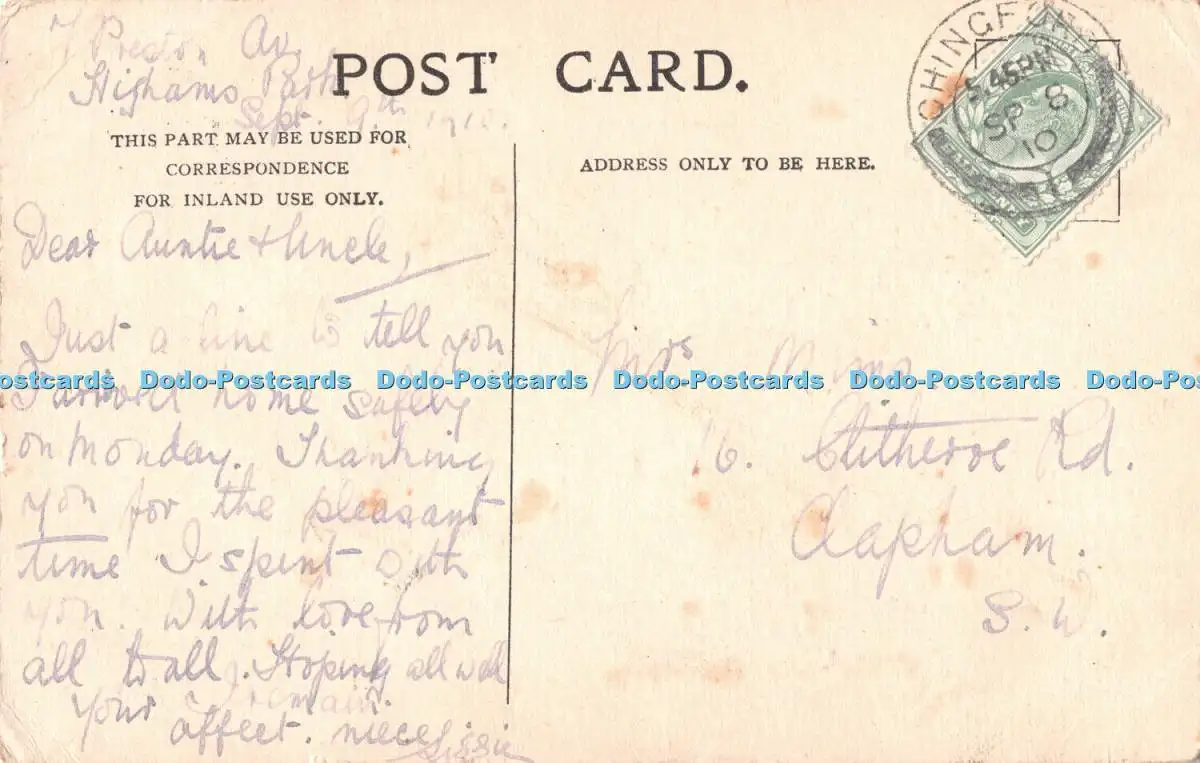 7 Preston Av.
Highams Park
Sept. 9th 1910.
POST CARD.
THIS PART MAY BE USED FOR
CORRESPONDENCE
FOR INLAND USE ONLY.
ADDRESS ONLY TO BE HERE.
CHINGFORD
5.45PM
SP 8
10
Dear Auntie & Uncle,
Just a line to tell you
I arrived home safely
on Monday. Thanking
you for the pleasant
time I spent with
you. With love from
all to all. Hoping all well
remain.
Your affect. niece Lissie
Mrs
16. Clitheroe Rd.
Clapham.
S.W.
Dodo-Postcards Dodo-Postcards Dodo-Postcards Dodo-Postcards Dodo-Postcards